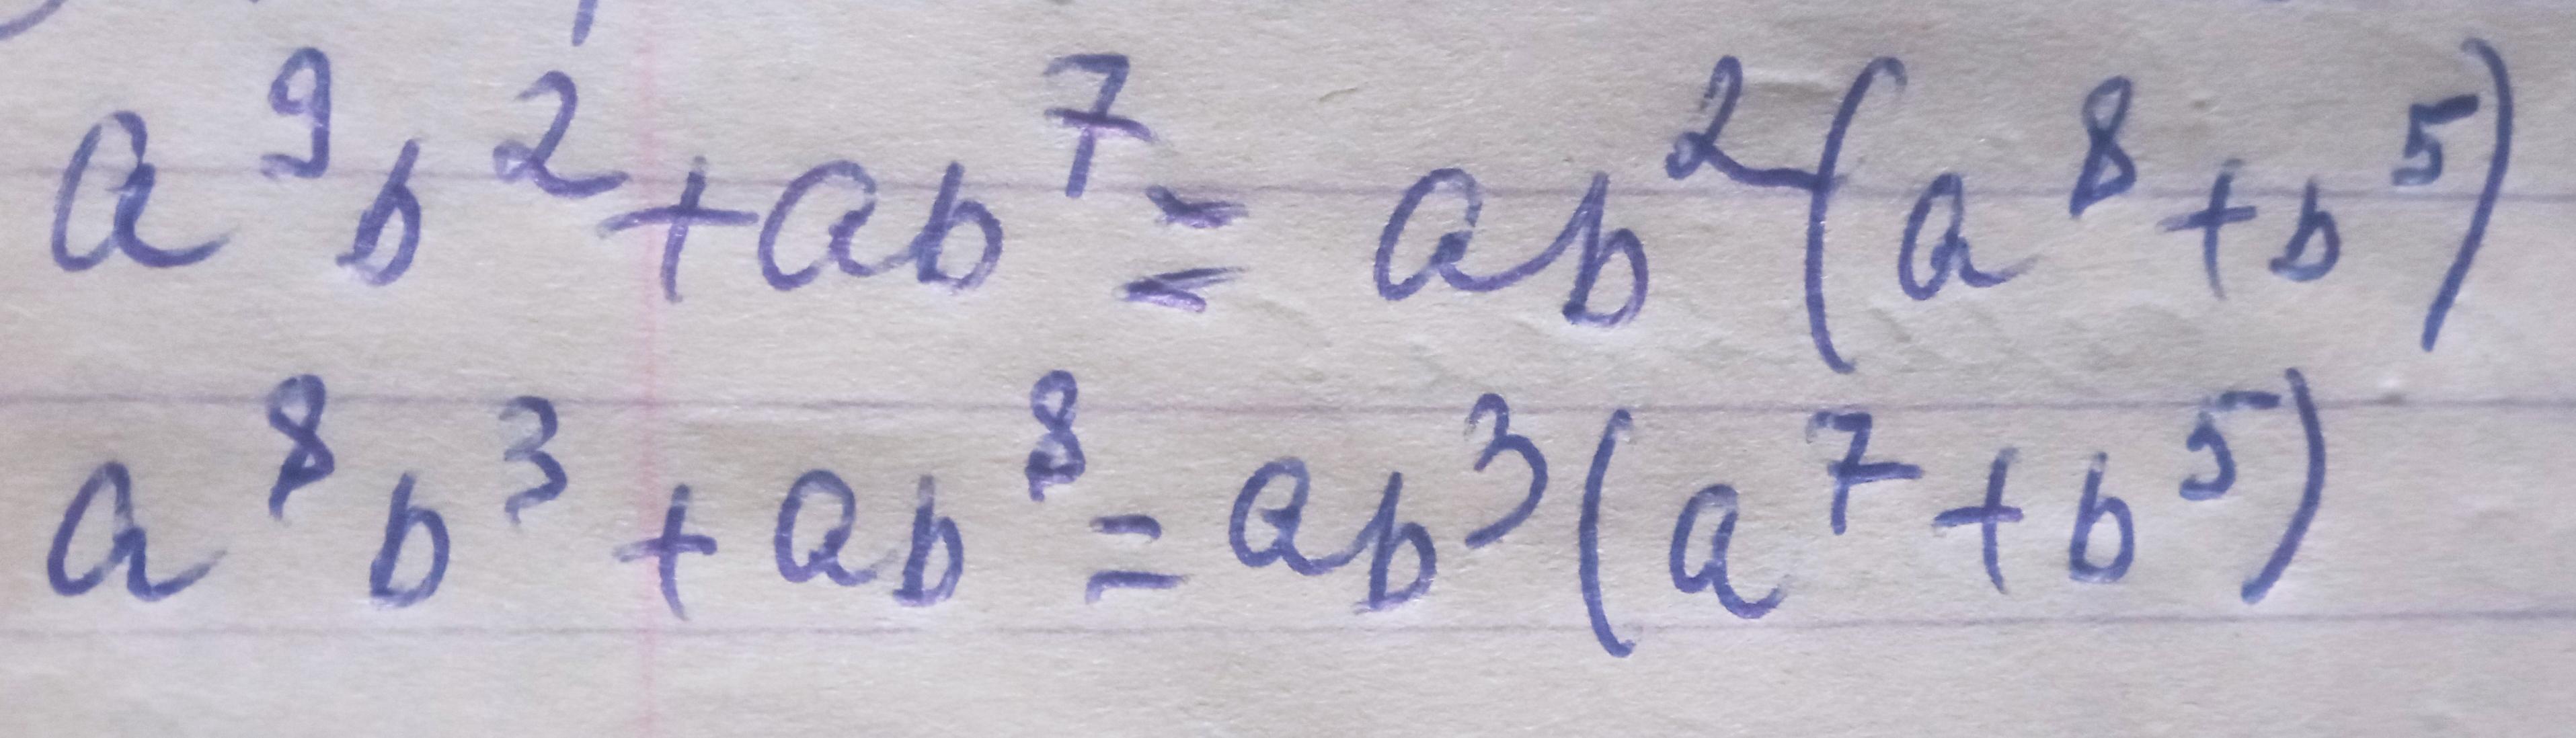 a⁹b² + ab⁷ = ab²(a⁸ + b⁵)
a⁸b³ + ab⁸ = ab³(a⁷ + b⁵)